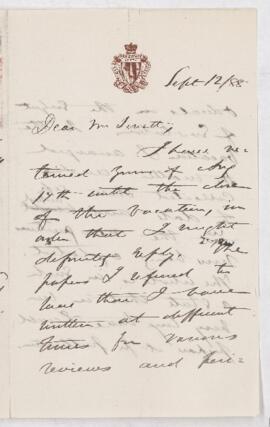 Sept 12/88
Dear Mr
I have re-
tained yours of
17th until the close
of the vacation, in
order that I might
definitely reply. The
papers I referred to
less than I have
written at different
times for various
reviews and